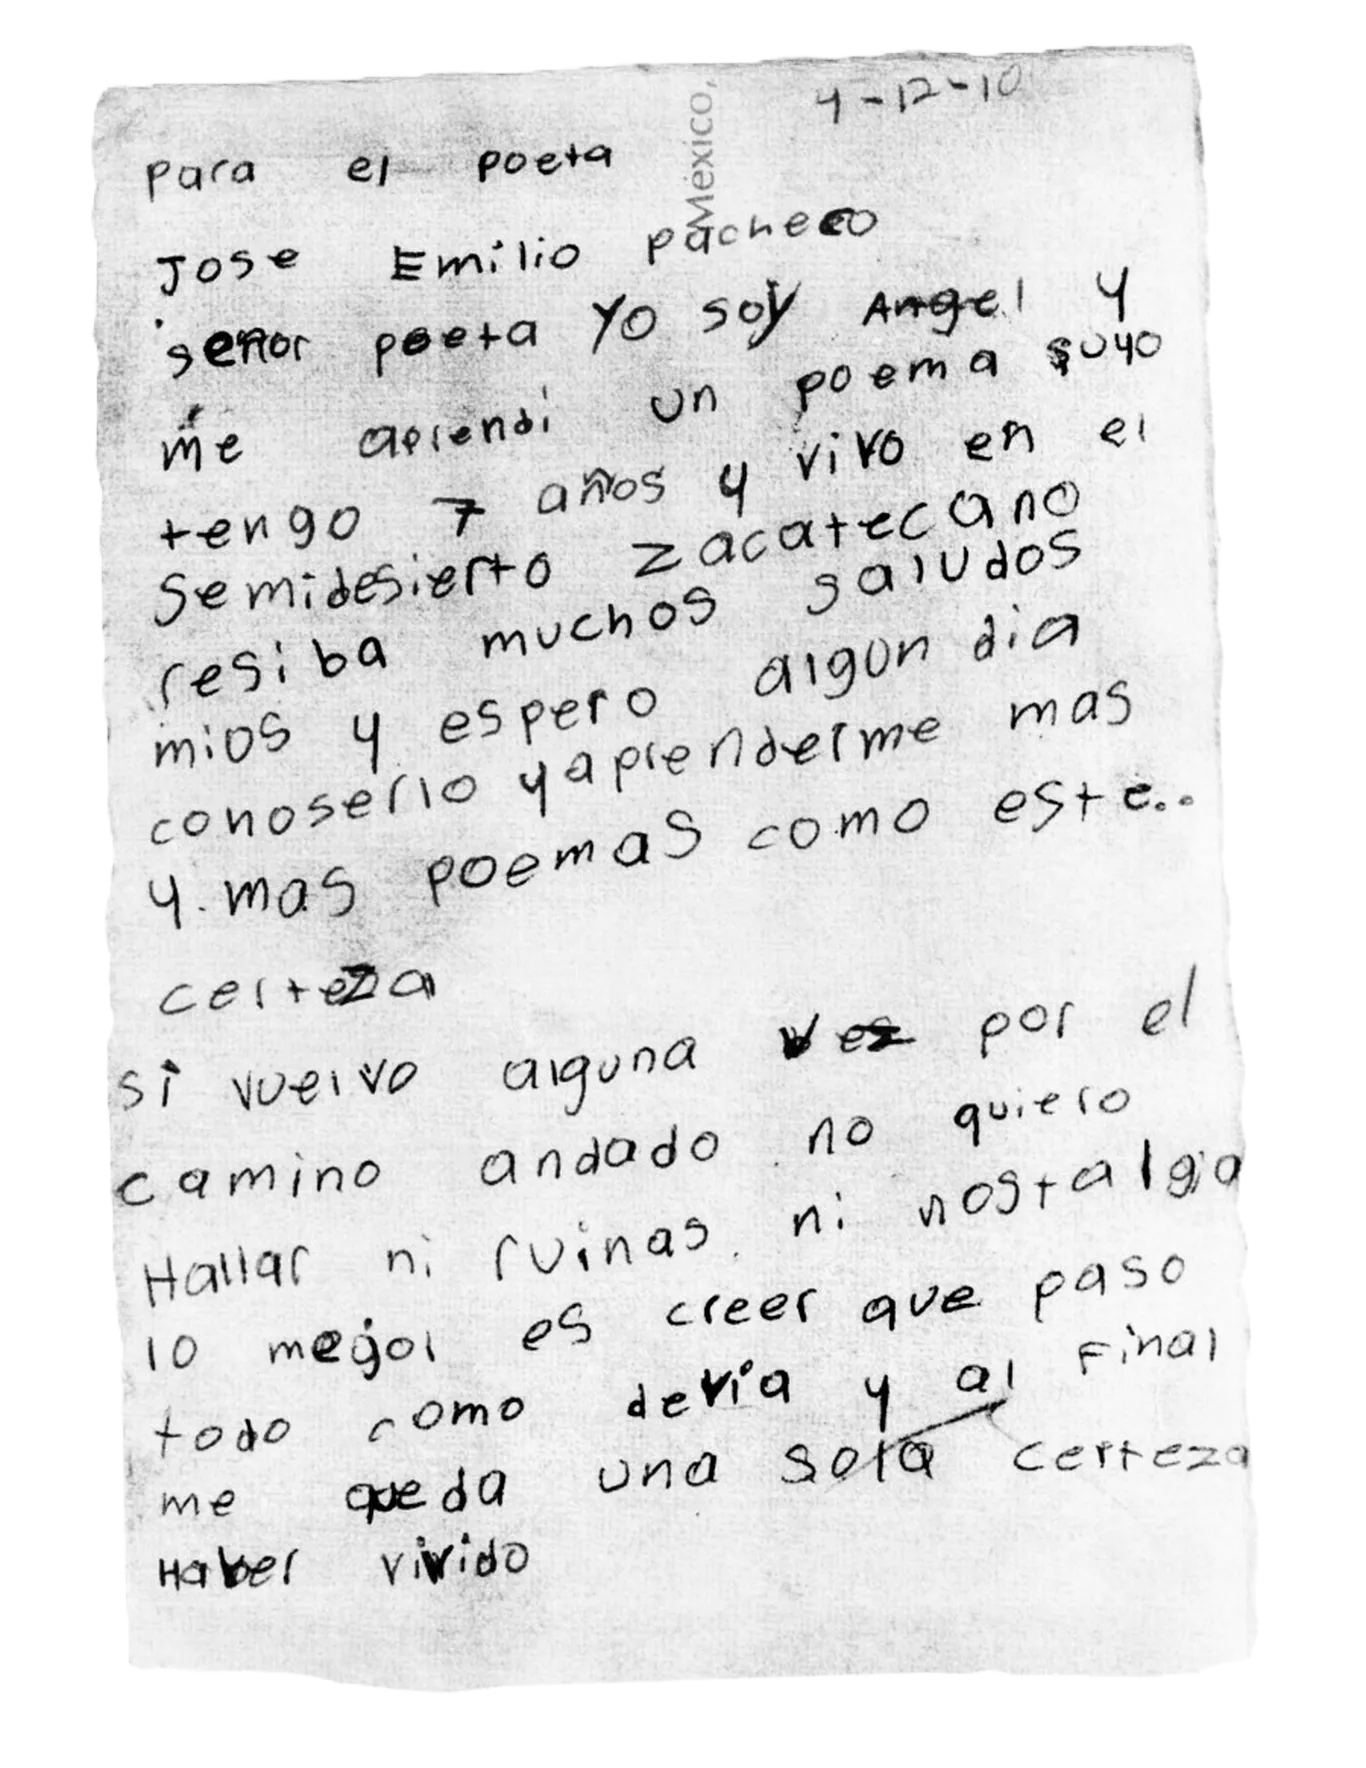 4-12-10
México,
para el poeta
Jose Emilio pacheco
señor poeta Yo soy Angel y
me aprendi un poema suyo
tengo 7 años y vivo en el
semidesierto zacatecano
resiba muchos saludos
mios y espero algun dia
conoserlo y aprenderme mas
y. mas poemas como este...
certeza
si vuelvo alguna vez por el
camino andado no quiero
Hallar ni ruinas ni nostalgia
lo mejor es creer que paso
todo como devia y al Final
me queda una sola certeza
Haber vivido